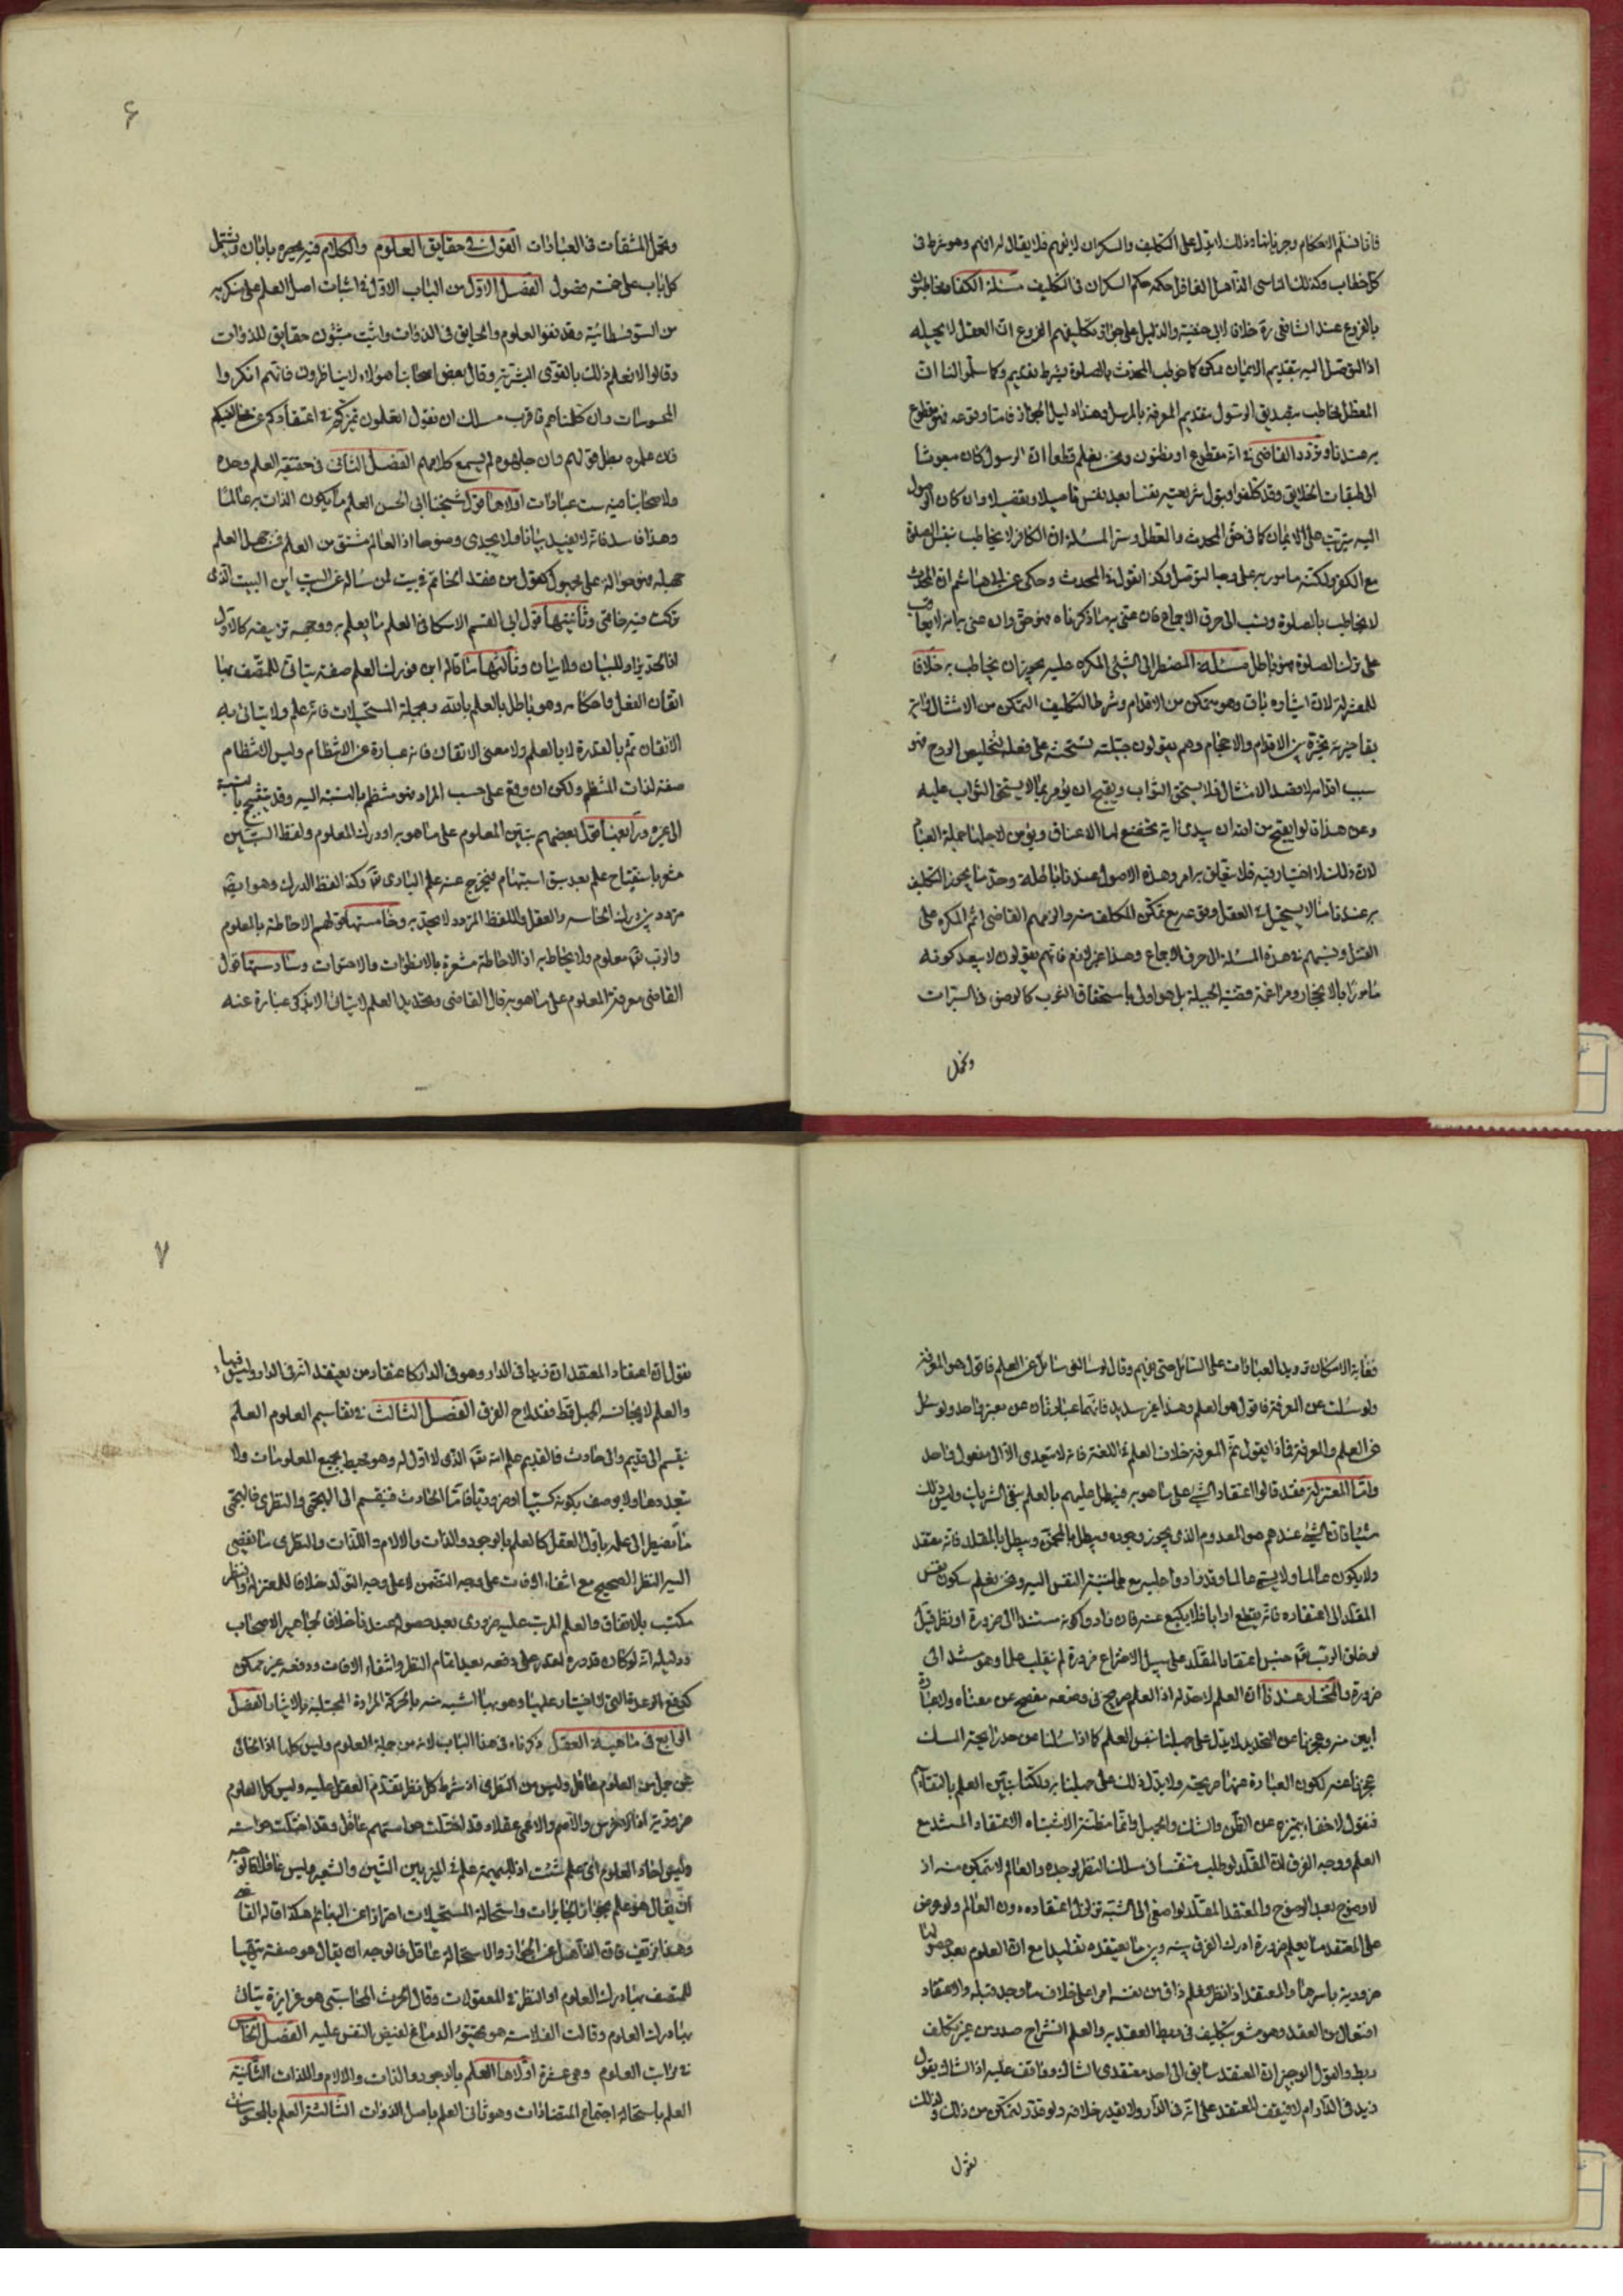 فانا فسلم الاحكام وجريانها وذلك لا يدل على التكليف والسكران لا يفهم فلا يقال له افهم وهو شرط فى
كل خطاب وكذلك الناسى الذاهل الغافل حكمه حكم السكران فى التكليف مسئلة الكفار مخاطبون
بالفروع عند الشافعى رة خلافا لابى حنيفة والدليل على جواز تكليفهم الفروع ان العقل لا يحيله
اذا التوصل اليه بتقديم الايمان ممكن كما خوطب المحدث بالصلوة بشرط تقديم وكما سلموا لنا ان
المعطل مخاطب بتصديق الرسول بتقديم المعرفة بالمرسل وهذا دليل الجواز فاما وقوعه فهو مقطوع
به عندنا وتردد القاضى فى انه مقطوع او مظنون ونحن نعلم قطعا ان الرسول كان مبعوثا
الى طبقات الخلايق وقد كلفوا قبول شريعته
اليه يترتب على الايمان كما فى حق المحدث والمعطل وسر المسئلة ان الكافر لا يخاطب بفعل الصلوة
مع الكفر ولكنه مامور به على وجها لتوصل وكذا نقول فى المحدث وحكى عن ابى هاشم ان المحدث
لا يخاطب بالصلوة ونسب الى خرق الاجماع فان عنى به ما ذكرناه فهو حق وان عنى به انه لا يعاقب
على ترك الصلوة فهو باطل مسئلة المضطر الى الشئ المكره عليه يجوز ان يخاطب به خلافا
للمعتزلة لان ايثاره باق وهو متمكن من الاقدام وشرط التكليف التمكن من الامتثال
بقا خيرته بين الاقدام والاحجام وهم يقولون جبلته تستحثه على فعله لتخليص الروح فهو
سبب اقدامه لا قصد الامتثال فلا يستحق الثواب ويقبح ان يؤمر بما لا يستحق الثواب عليه
وعن هذا قالوا يقبح من الله ان يبدى اية تخضع لها الاعناق ويؤمن لاجلها جملة العباد
لان ذلك لا اختيار فيه فلا يتعلق به امر وهذه الاصول عندنا باطلة وحد ما يجوز التكليف
به عندنا ما لا يستحيل فى العقل وقوعه مع تمكن المكلف منه والزمهم القاضى اثم المكره على
القتل ونسبهم فى هذه المسئلة الى خرق الاجماع وهذا غير لازم فانهم يقولون لا يبعد كونه
مامورا بالانحجار ومراغمة قضية الجبلة بل هو اولى باستحقاق الثواب كالوضوء فى السبرات
وتحمل
وتحمل المشقات فى العبادات القول فى حقايق العلوم والكلام فيه يحصره بابان ويشتمل
كل باب على خمسة فصول الفصل الاول من الباب الاول فى اثبات اصل العلم على منكريه
من السوفسطائية وقد نفوا العلوم والحقايق فى الذوات واثبت مثبتون حقايق للذوات
وقالوا لا نعلم ذلك بالقوى البشرية وقال بعض اصحابنا هؤلاء لا يناظرون فانهم انكروا
المحسوسات وان كلمناهم فاقرب مسلك ان نقول اتعلمون تميزكم فى اعتقادكم عن مخالفيكم
فان علموه بطل قولهم وان جهلوه لم يسمع كلامهم الفصل الثانى فى حقيقة العلم وحده
ولاصحابنا فيه ست عبارات اولاها قول شيخنا ابى الحسن العلم ما يكون الذات به عالما
وهذا فاسد فانه لا يفيد بيانا ولا يجدى وضوحا اذ العالم مشتق من العلم فمن جهل العلم
جهله فهو حوالة على مجهول كقول من فقد الخاتم فى بيت لمن ساله عن البيت اين البيت الذى
تركت فيه خاتمى وثانيتها قول ابى القسم الاسكافى العلم ما يعلم به ووجه تزييفه كالاول
اذ التحديد يراد للبيان ولا بيان وثالثتها ما قاله ابن فورك العلم صفة يتاتى للمتصف بها
اتقان الفعل واحكامه وهو باطل بالعلم بالله وبجملة المستحيلات فانه علم ولا يتاتى به
الاتقان ثم بالقدرة لا بالعلم ولا معنى للاتقان فانه عبارة عن الانتظام وليس الانتظام
صفة لذات المنتظم ولكن ان وقع على حسب المراد فهو منتظم بالنسبة اليه وقد يستقبح بالنسبة
الى غيره ورابعها قول بعضهم تبين المعلوم على ما هو به او درك المعلوم ولفظ التبين
مشعر باستفتاح علم بعد سبق استبهام فيخرج عنه علم البارى تعالى وكذا لفظ الدرك وهو ايضا
مردد بين درك الحاسة والعقل واللفظ المردد لا يحد به وخامستها قولهم الاحاطة بالمعلوم
والرب تعالى معلوم ولا يحاط به اذ الاحاطة مشعرة بالانطواء والاحتواء وسادستها قول
القاضى معرفة المعلوم على ما هو به قال القاضى وتحديد العلم لا يتاتى الا بذكر عبارة عنه
۶
فغاية الامكان ترديد العبارات على السائل حتى يفهم وقال لو سالنى سائل عن العلم فاقول هو المعرفة
ولو سئلت عن المعرفة فاقول هو العلم وهذا غير سديد فانهما عبارتان عن معبر واحد ولو سئل
عن العلم والمعرفة فماذا يقول ثم المعرفة خلاف العلم فى اللغة فانه لا يتعدى الا الى مفعول واحد
واما المعتزلة فقد قالوا اعتقاد الشئ على ما هو به فيبطل عليهم بالعلم بنفى الشريك وليس ذلك
شيئا فان الشئ عندهم هو المعدوم الذى يجوز وجوده ويبطل بالمخمن ويبطل بالمقلد فانه معتقد
ولا يكون عالما ولا يسمى عالما وقد زادوا عليه مع طمانينة النفس اليه ونحن نعلم سكون نفس
المقلد الى اعتقاده فانه يقطع اربا اربا فلا يكيع عنه فان زادوا كونه مستندا الى ضرورة او نظر قيل
لو خلق الرب تعالى جنس اعتقاد المقلد على سبيل الاختراع ضرورة لم ينقلب علما وهو مستند الى
ضرورة والمختار عندنا ان العلم لا حد له اذ العلم صريح فى وضعه مفصح عن معناه ولا عبارة
ابين منه وعجزنا عن التحديد لا يدل على جهلنا بنفس العلم كما اذا سئلنا عن حد رايحة المسك
عجزنا عنه لكون العبارة عنها صريحة ولا يدل ذلك على جهلنا به ولكنا نبين العلم بالتقاسيم
فنقول لا خفاء بتميزه عن الظن والشك والجهل وانما مظنة الاشتباه الاعتقاد المستند مع
العلم ووجه الفرق ان المقلد لو طلب متنفسا فى مسلك النظر لوجده والعالم لا يتمكن منه اذ
لا وضوح بعد الوضوح والمعتقد المقلد لو اصغى الى الشبه تزلزل اعتقاده دون العالم ولو عرض
على المعتقد ما يعلم ضرورة ادرك الفرق بينه وبين ما يعتقده تقليدا مع ان العلوم بعد حصولها
ضرورية باسرها والمعتقد اذا نظر وعلم ذاق من نفسه امرا على خلاف ما وجد قبله والاعتقاد
افتعال من العقد وهو مشعر بتكليف فى ربط العقد به والعلم انشراح صدر من غير تكلف
ربط والقول الوجيز ان المعتقد سابق الى احد معتقدى الشاك وواقف عليه اذ الشاك يقول
زيد فى الدار ام لا فيقف المعتقد على انه فى الدار ولا يقدر خلافه ولو قدر لتمكن من ذلك ولذلك
نقول
نقول ان اعتقاد المعتقد ان زيدا فى الدار وهو فى الدار كاعتقاد من يعتقد انه فى الدار وليس فيها
والعلم لا يجانسه الجهل قط فقد لاح الفرق الفصل الثالث فى تقاسيم العلوم العلم
ينقسم الى قديم والى حادث فالقديم علم الله تعالى الذى لا اول له وهو محيط بجميع المعلومات ولا
يتعدد بها ولا يوصف بكونه كسبيا او ضروريا فاما الحادث فينقسم الى الهجمى والنظرى فالهجمى
ما يضطر الى علمه باول العقل كالعلم بالوجود والذات والالام واللذات والنظرى ما يفضى
اليه النظر الصحيح مع انتفاء الافات على وجه التضمن لا على وجه التولد خلافا للمعتزلة والنظر
مكتسب بالاتفاق والعلم المرتب عليه ضرورى بعد حصوله عندنا خلاف لجماهير الاصحاب
ودليله انه لو كان قدوره لقدر على دفعه بعد اتمام النظر وانتفاء الافات ودفعه غير ممكن
كدفع الرعدة التى لا اختيار عليها وهو بها اشبه منه بالحركة المرادة المجتلبة بالايثار الفصل
الرابع فى ماهية العقل ذكرناه فى هذا الباب لانه من جملة العلوم وليس كلها اذ الخالى
عن جل من العلوم عاقل وليس من النظرى اذ شرط كل نظر تقدم العقل عليه وليس كل العلوم
ضرورية اذ الاخرس والاصم والاعمى عقلاء وقد اختلت حواسهم
وليس احاد العلوم اى علم شئت اذ البهيمة علمت الميز بين التبن والشعير وليس عاقلا فالوجه
ان يقال هو علم بجواز الجائزات واستحالة المستحيلات احترازا عن البهائم هكذا قاله القاضى
وهذا مزيف فان الذاهل عن الجواز والاستحالة عاقل فالوجه ان يقال هو صفة يتهيا
للمتصف بها درك العلوم او النظر فى المعقولات وقال الحرث المحاسبى هو غريزة يتاتى
بها درك العلوم وقالت الفلاسفة هو تهيؤ الدماغ لفيض النفس عليه الفصل الخامس
فى مراتب العلوم وهى عشرة اولاها العلم بالوجود والذات والالام واللذات الثانية
العلم باستحالة اجتماع المتضادات وهو ثانى العلم باصل الذوات الثالثة العلم بالمحسوسات
۷